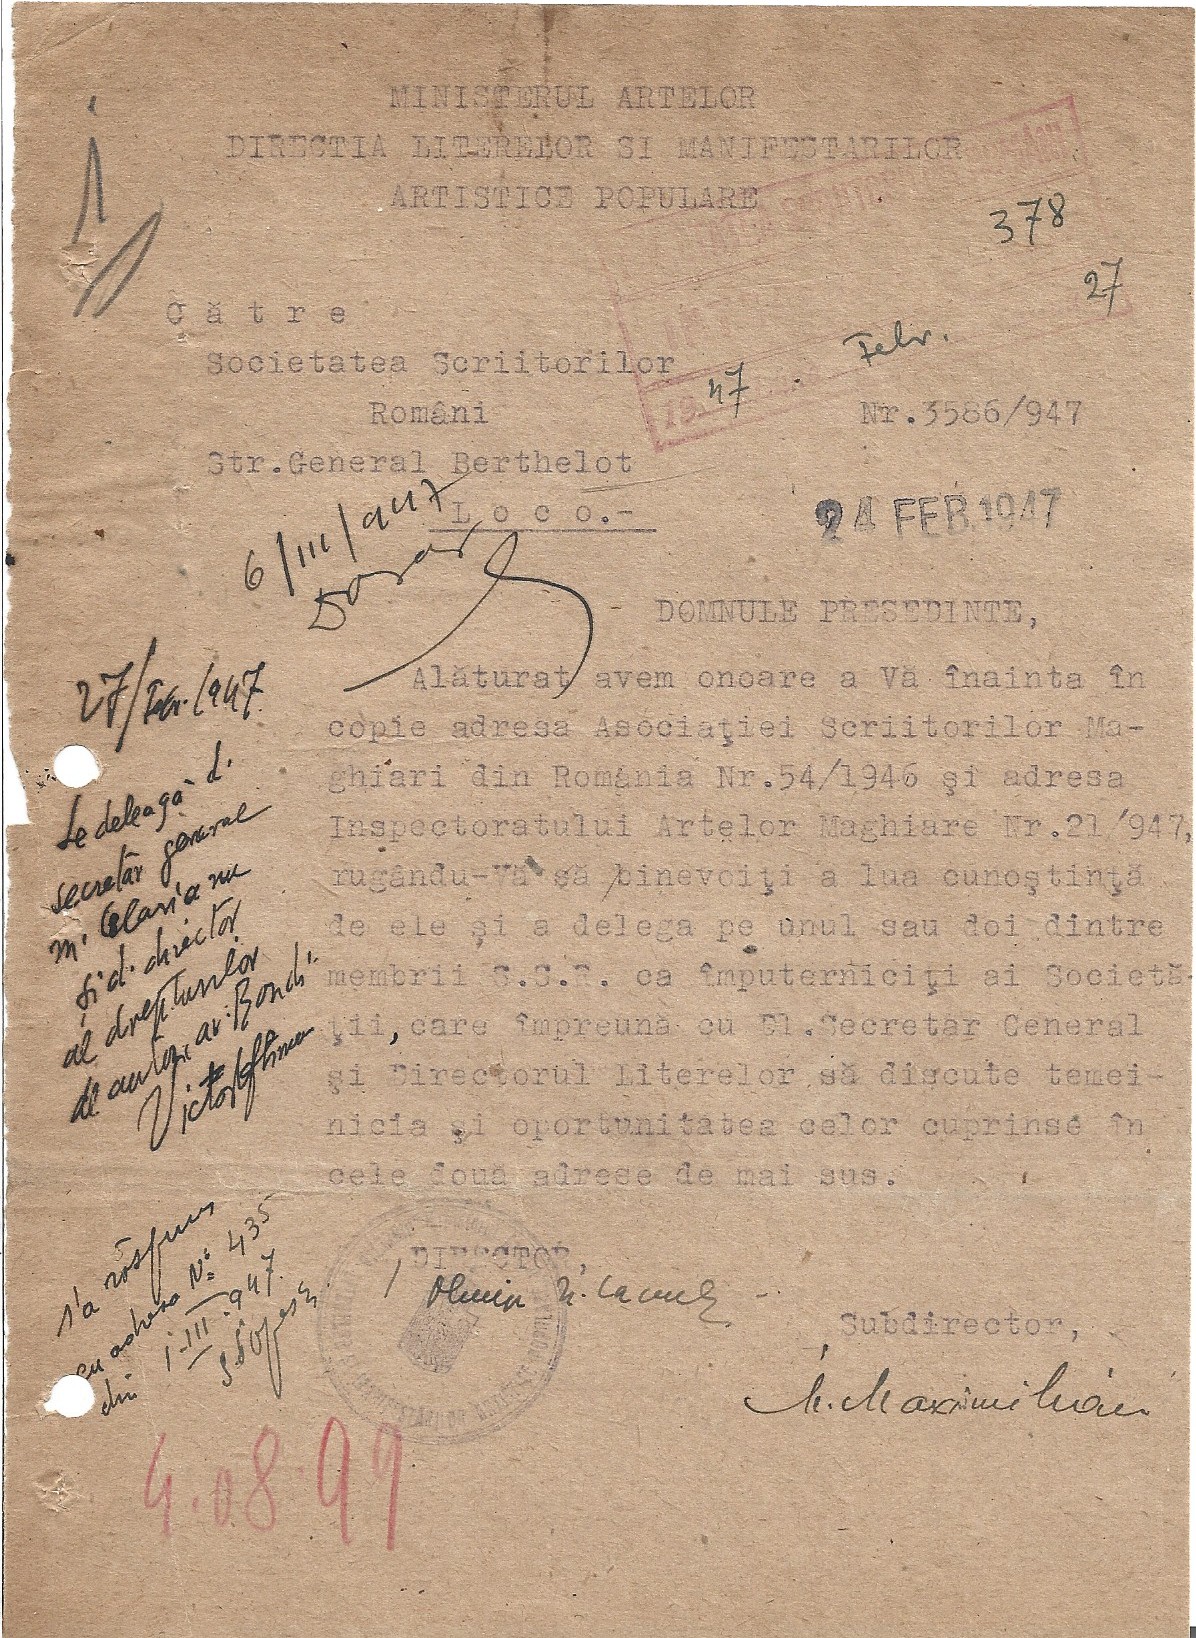 MINISTERUL ARTELOR
DIRECTIA LITERELOR SI MANIFESTARILOR
ARTISTICE POPULARE
378
27
Febr.
47
19
C ă t r e
Societatea Scriitorilor
Români
Nr.3586/947
Str.General Berthelot
L o c o.-
24 FEB.1947
6/III/947
Dosar
- DOMNULE PRESEDINTE,
27/Febr./947.
Alăturat avem onoare a Vă înainta în
copie adresa Asociaţiei Scriitorilor Ma-
ghiari din România Nr.54/1946 şi adresa
Inspectoratului Artelor Maghiare Nr.21/947,
rugându-Vă să binevoiţi a lua cunoştinţă
de ele şi a delega pe unul sau doi dintre
membrii S.S.R. ca împuterniciţi ai Societă-
ţii, care împreună cu Dl.Secretar General
şi Directorul Literelor să discute temei-
nicia şi oportunitatea celor cuprinse în
cele două adrese de mai sus.
Se deleagă d.
secretar general
m. Celarianu
și d. director
al drepturilor
de autor, av. Bondi.
Victor Eftimiu
s'a răspuns
cu adresa No. 435
din 1-III-947.
DIRECTOR,
Subdirector,
M. Maximilian
4.08.97